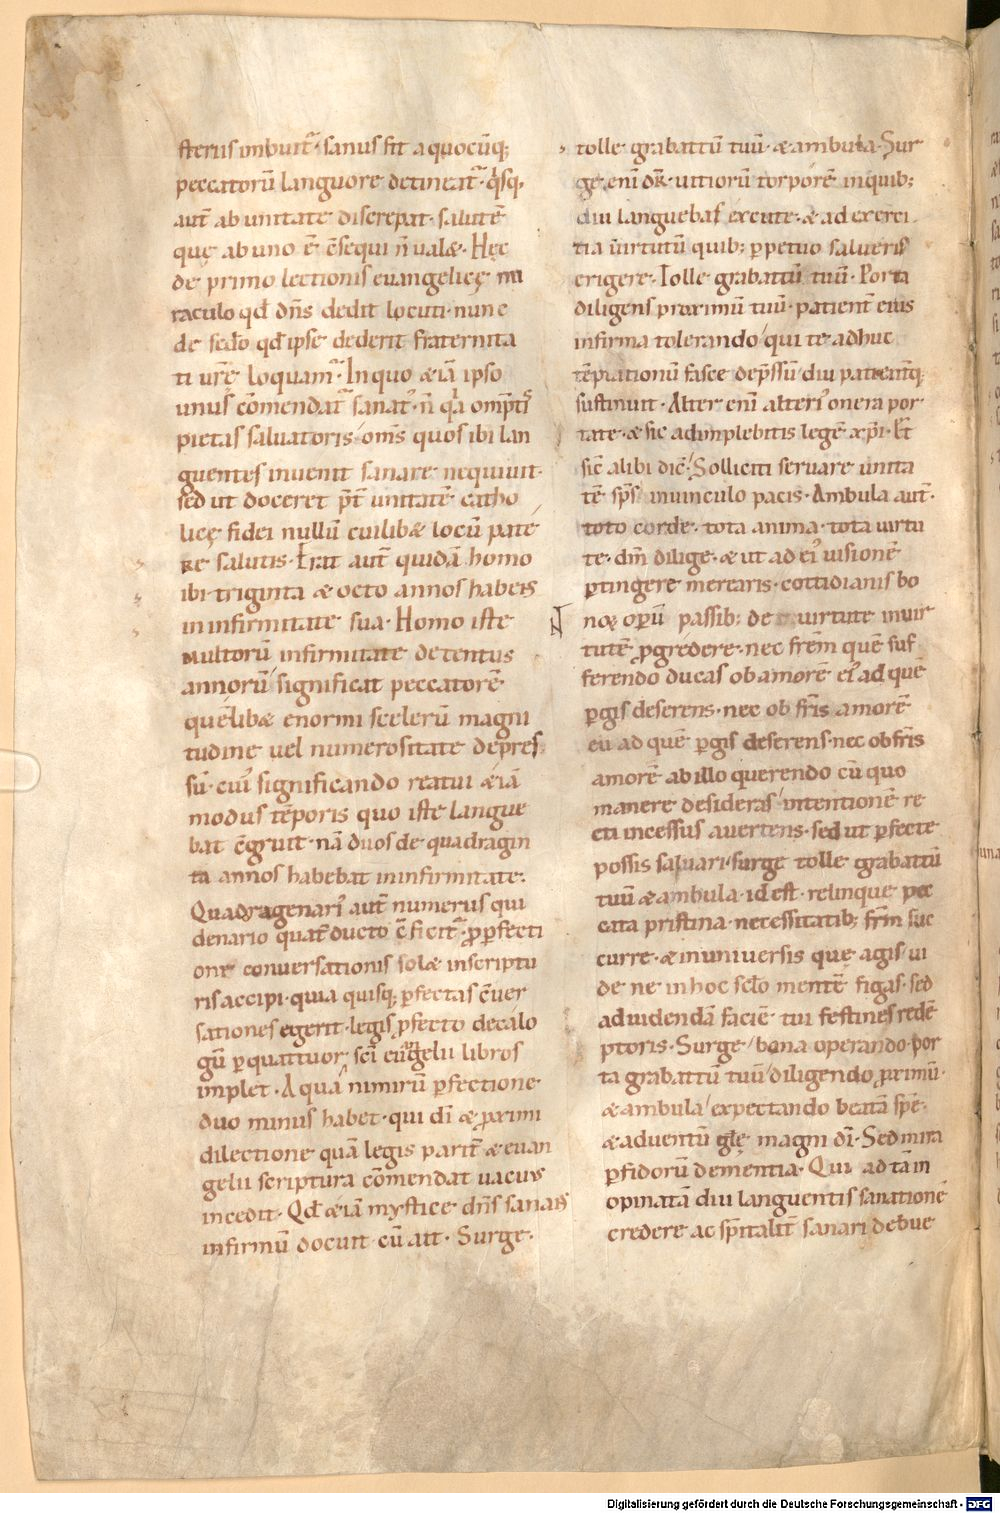 sterus imbuit᷑· sanus fit a quocūq;
peccatorū languore detineat᷑· q̇sq,
aut̄ ab unitate discrepat· salutē
quę ab uno ē c̄sequi n̄ ualæ· Hęc
de primo lectionis euangelicę mi
raculo qd̄ dn̄s dedit locuti· nunc
de scd̄o qd̄ ipse dederit fraternita
ti ur̄ę loquam᷑· In quo æiā ipso
unus cōmendat᷑ sanat᷒· n̄ qa omp̄tis
pietas saluatoris om̄s quos ibi lan
guentes inuenit sanare nequiuit·
sed ut doceret p̄t unitatē catho
licę fidei nullū cuilibæ locū pate
re salutis· Erat aut̄ quidā homo
ibi triginta æ octo annos habens
in infirmitate sua· Homo iste
multorū infirmitate detentus
annorū significat peccatorē·
quēlibæ enormi scelerū magni
tudine uel numerositate depres
sū· cui᷒ significando reatui æiā
modus tēporis quo iste langue
bat c̄gruit· nā duos de quadragin
ta annos habebat in infirmitate·
Quadragenari᷒ aut̄ numerus qui
denario quat̄ ducto c̄ficit᷑· p̱ ꝑfecti
one conuersationis solæ in scriptu
ris accipi· quia quisq; ꝑfectas c̄uer
sationes egerit· legis ꝑfecto decalo
gū ꝑ quattuor sc̄i eu̅gelii libros
implet· A quā nimirū ꝑfectione
duo minus habet· qui dī æ ꝓximi
dilectione quā legis parit̄ æ euan
gelii scriptura cōmendat uacuus
incedit· Qd̄ æiā mystice dn̄s sanans
infirmū docuit cū ait· Surge·
tolle grabattū tuū· æ ambula· Sur
ge enī dx̄· uitiorū torporē in quib;
diu languebas excute· æ ad exerci
tia uirtutū quib; ꝑpetuo salueris
erigere· Tolle grabattū tuū· Porta
diligens proximū tuū· patient̄ eius
infirma tolerando qui te adhuc
tēptationū fasce dep̄ssū diu patient̄q;
sustinuit· Alter enī alteri᷒ onera por
tate· æ sic adimplebitis legē xp̄i· Et
sic̄ alibi dic̄· Solliciti seruare unita
tē sp̄s in uinculo pacis· Ambula aut̄·
toto corde· tota anima· tota uirtu
te· dm̄ dilige· æ ut ad ei᷒ uisionē
ꝑtingere merearis· cottidianis bo
noꝝ oꝑū passib; de uirtute in uir
tutē ꝓgredere· nec fr̄em quē suf
ferendo ducas ob amorē ei᷒ ad quē
ꝑgis deserens· nec ob fr̄is amorē
eū ad quē ꝑgis deserens· nec ob fr̄is
amorē ab illo querendo cū quo
manere desideras intentionē re
cti incessus auertens· sed ut ꝑfecte
possis saluari· surge tolle grabattū
tuū æ ambula· id est· relinque pec
cata pristina· necessitatib; fr̄m suc
curre· æ in uniuersis quę agis ui
de ne in hoc scl̄o mentē figas· sed
ad uidendā faciē tui festines redē
ptoris· Surge bona operando· por
ta grabattū tuū diligendo ꝓximū·
æ ambula expectando beatā spē·
æ aduentū gl̄ę magni dī· Sed mira
ꝑfidorū dementia· Qui ad tā in
opinatā diu languentis sanationē
credere ac sp̄italit̄ sanari debue
Digitalisierung gefördert durch die Deutsche Forschungsgemeinschaft - DFG